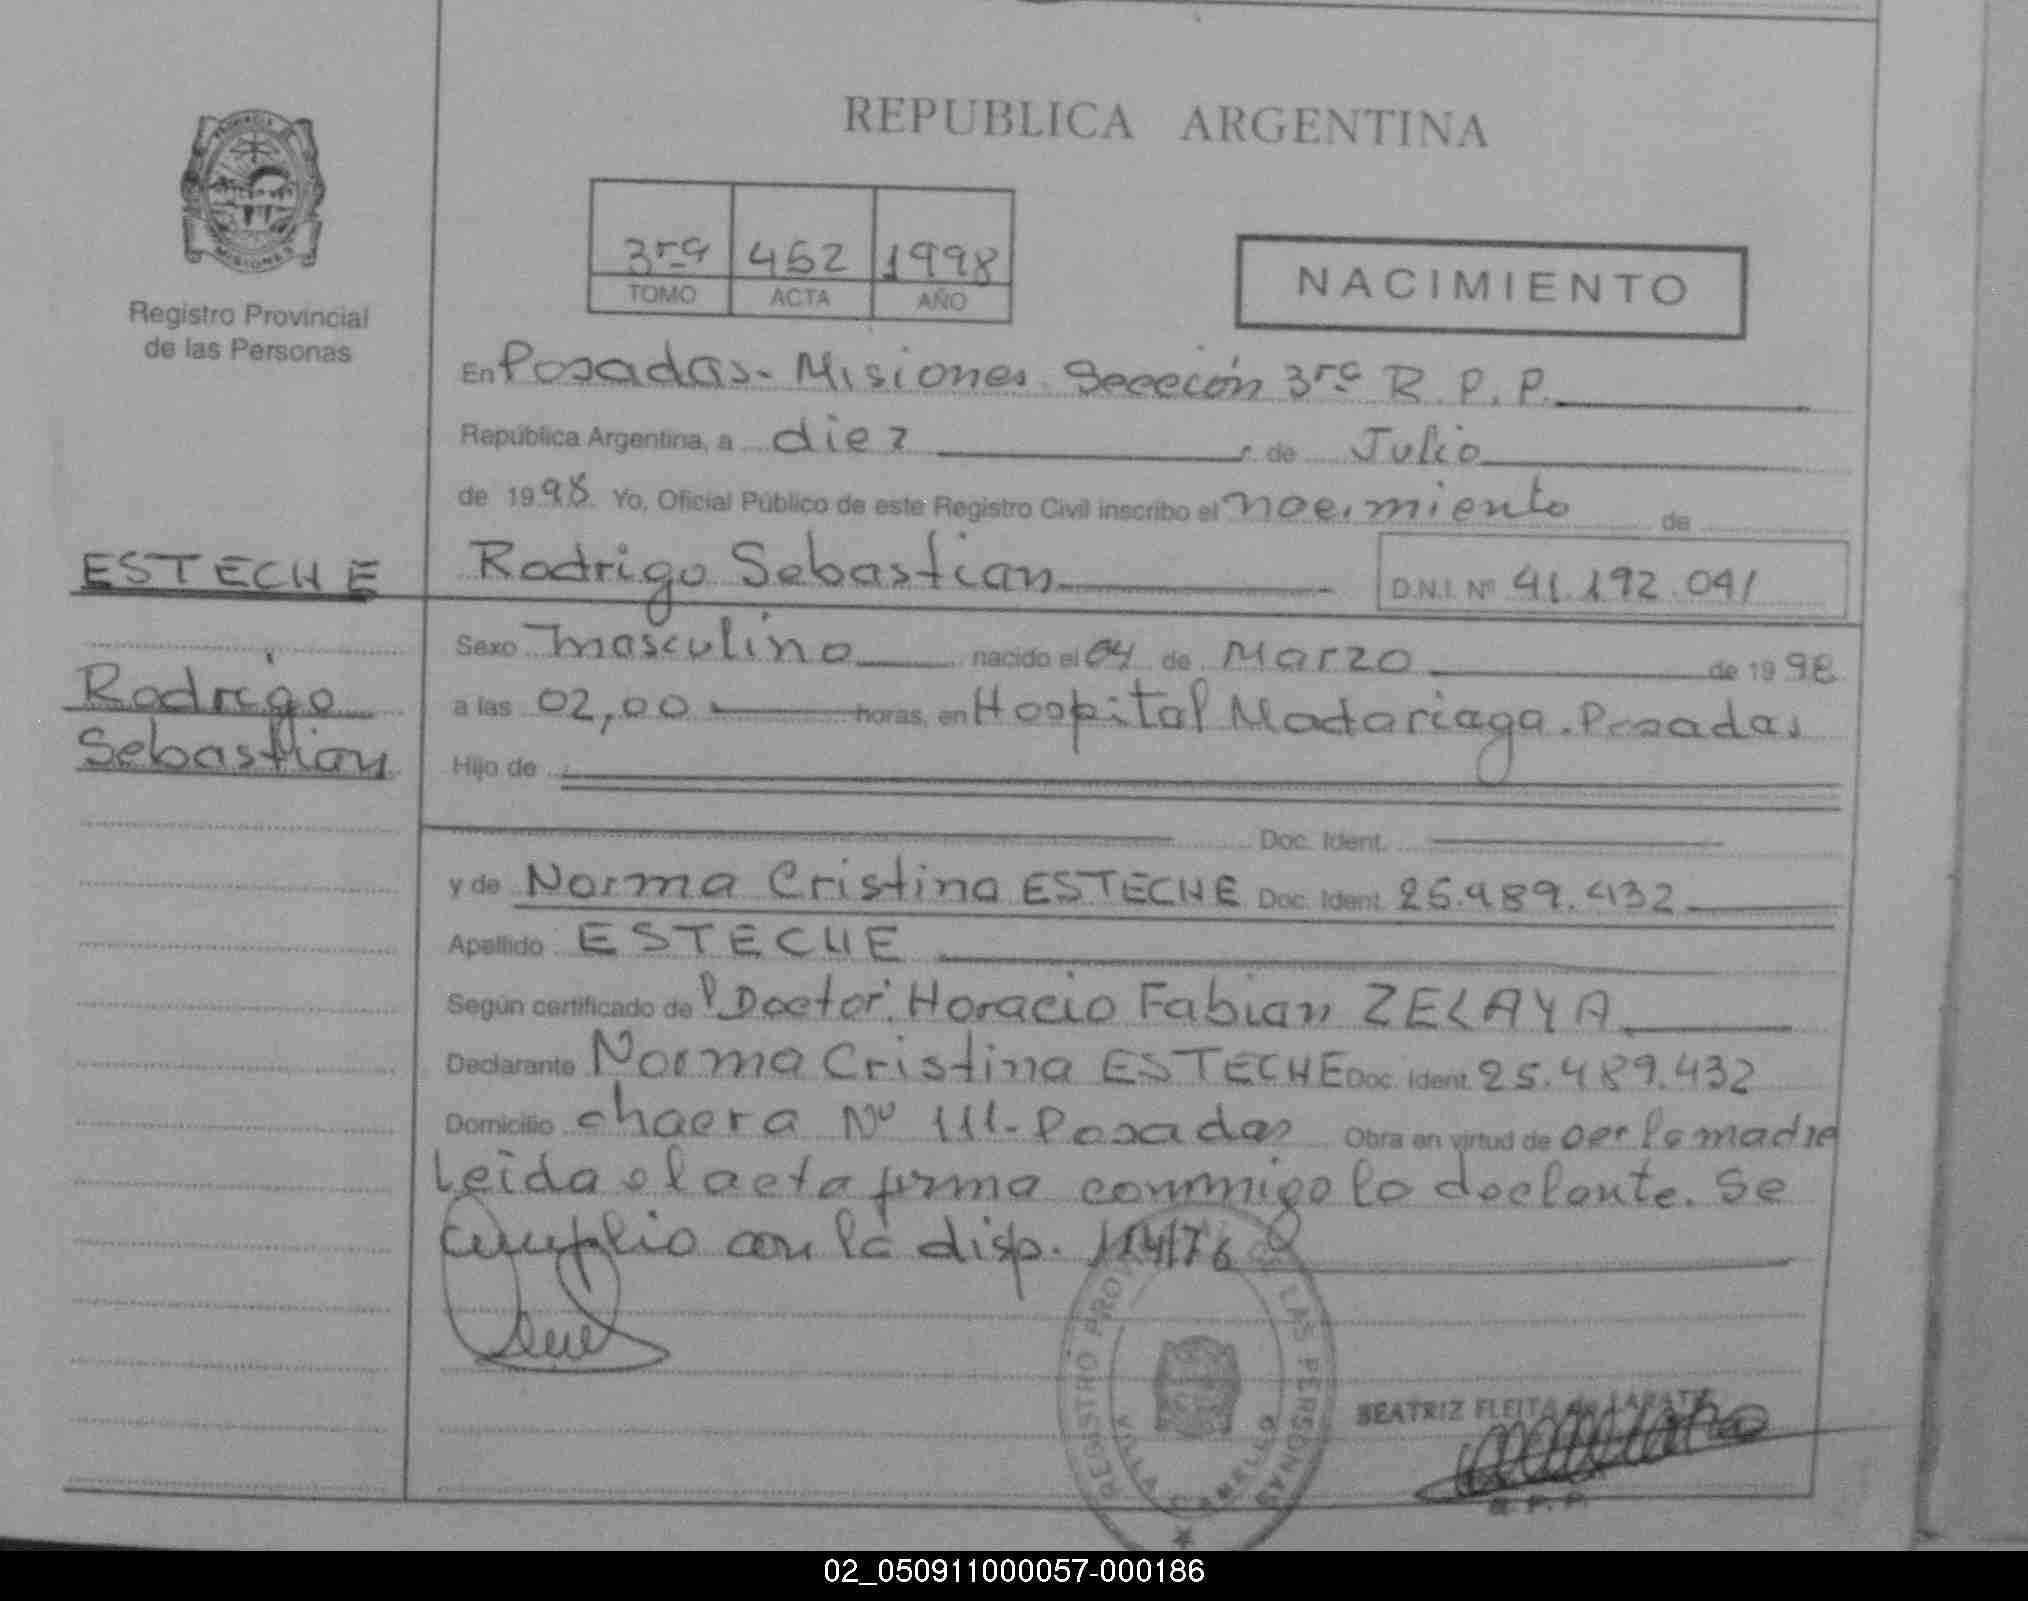 REPUBLICA ARGENTINA
PROVINCIA DE
MISIONES
Registro Provincial
de las Personas
3ra 462 1998
TOMO ACTA AÑO
NACIMIENTO
En Posadas - Misiones Sección 3ra R. P. P.
República Argentina, a diez de Julio
de 1998 Yo, Oficial Público de este Registro Civil inscribo el nacimiento de
ESTECHE
Rodrigo Sebastian D.N.I. Nº 41.192.041
Rodrigo
Sebastian
Sexo masculino nacido el 04 de Marzo de 1998
a las 02,00 horas, en Hospital Madariaga. Posadas
Hijo de
Doc. Ident.
y de Norma Cristina ESTECHE Doc. Ident. 25.489.432
Apellido ESTECHE
Según certificado de Doctor: Horacio Fabian ZELAYA
Declarante Norma Cristina ESTECHE Doc. Ident. 25.489.432
Domicilio chacra Nº 111 - Posadas Obra en virtud de ser la madre
Leida el acta firma conmmigo la declante. Se
cumplio con la disp. 114/76
REGISTRO LAS PERSONAS
VILLA CABELLO
BEATRIZ FLEITA de ZARATE
R. P. P.
02_050911000057-000186